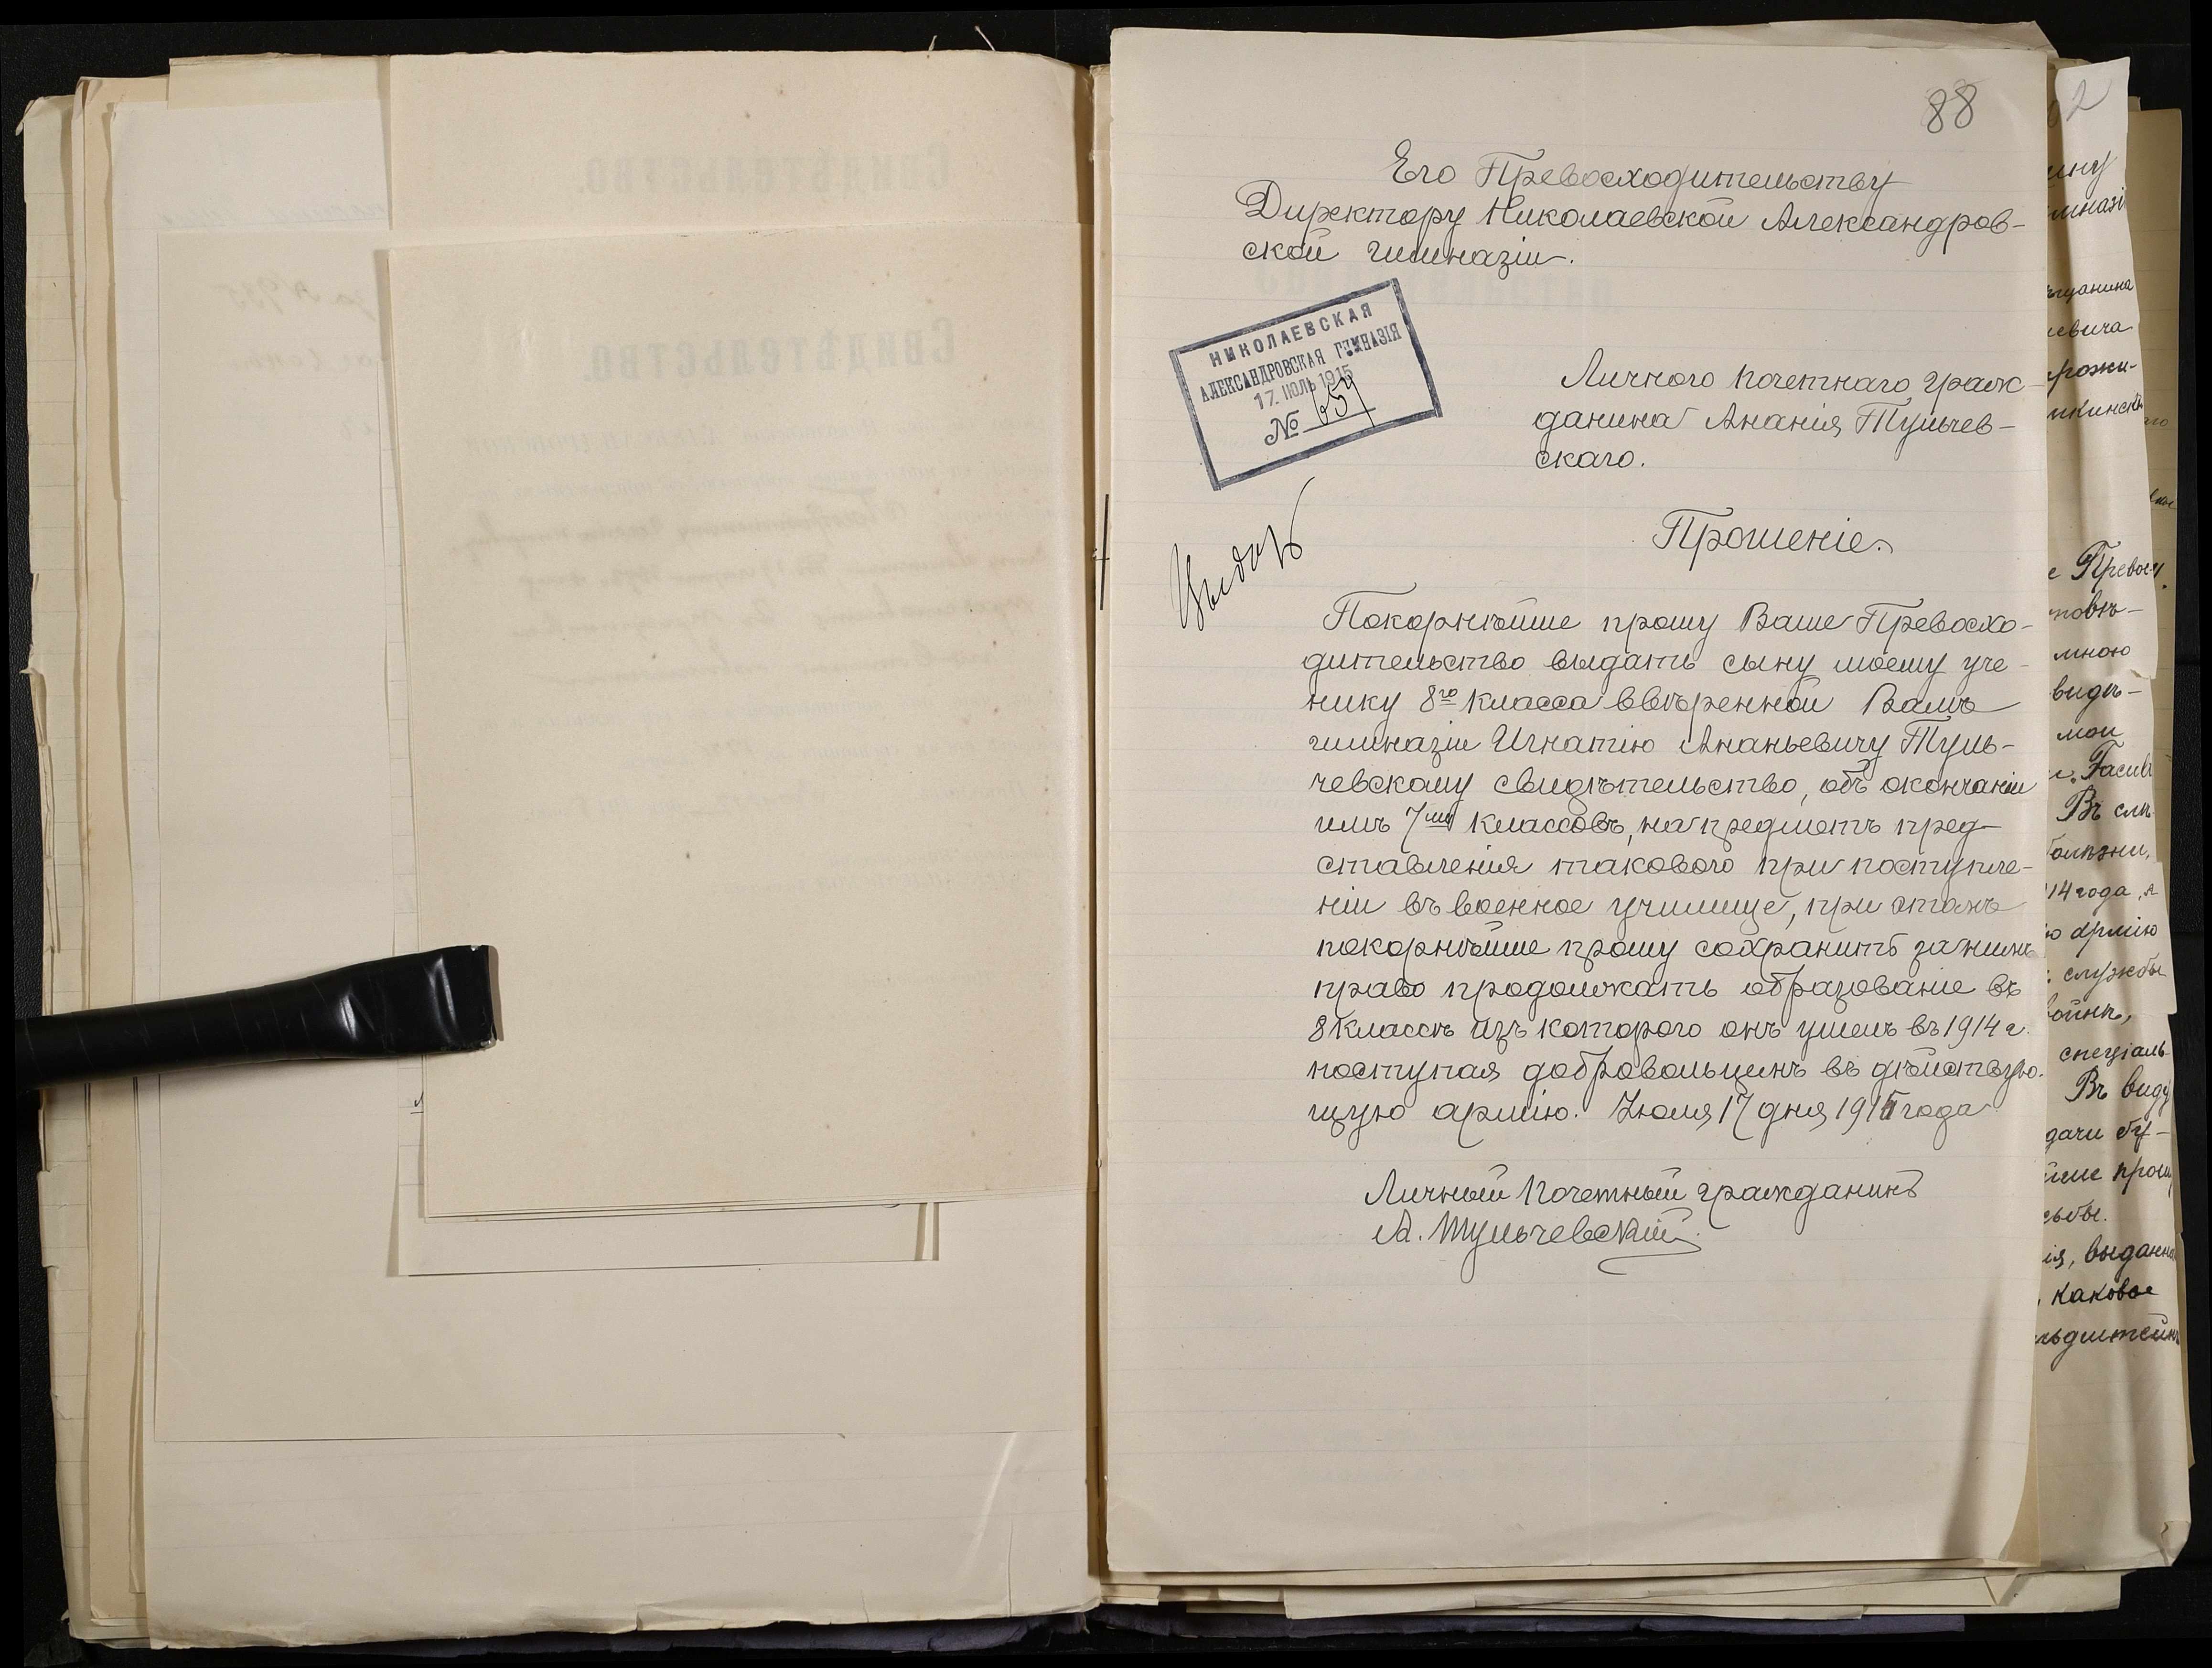 88
Его Превосходительству
Директору Николаевской Александров-
ской гимназіи.
НИКОЛАЕВСКАЯ
АЛЕКСАНДРОВСКАЯ ГИМНАЗІЯ
17. ІЮЛЬ 1915
№
Личного почетнаго граж-
данина Ананія Тульчев-
скаго.
Прошеніе.
Покорнѣйше прошу Ваше Превосхо-
дительство выдать сыну моему уче-
нику 8го класса ввѣренной Вамъ
гимназіи Игнатію Ананьевичу Туль-
чевскому свидѣтельство, объ окончаніи
имъ 7ми классовъ, на предметъ пред-
ставленія такового при поступле-
ніи въ военное училище, при этомъ
покорнѣйше прошу сохранить за нимъ
право продолжать образованіе въ
8 классѣ изъ которого онъ ушелъ въ 1914 г.
поступая добровольцемъ въ дѣйствую-
щую армію. Іюля 17 дня 1915 года
Личный почетный гражданинъ
А. Тульчевскій.
СВИДѢТЕЛЬСТВО.
СВИДѢТЕЛЬСТВО.
2
мназі
ѣщанина
евича
е Превосх.
мною
видѣ-
мои
Въ слѣ
14 года, а
ю армію
службы
войнѣ,
спеціаль
Въ виду
дачи бу-
йше прошу
ія, выданна
каковое